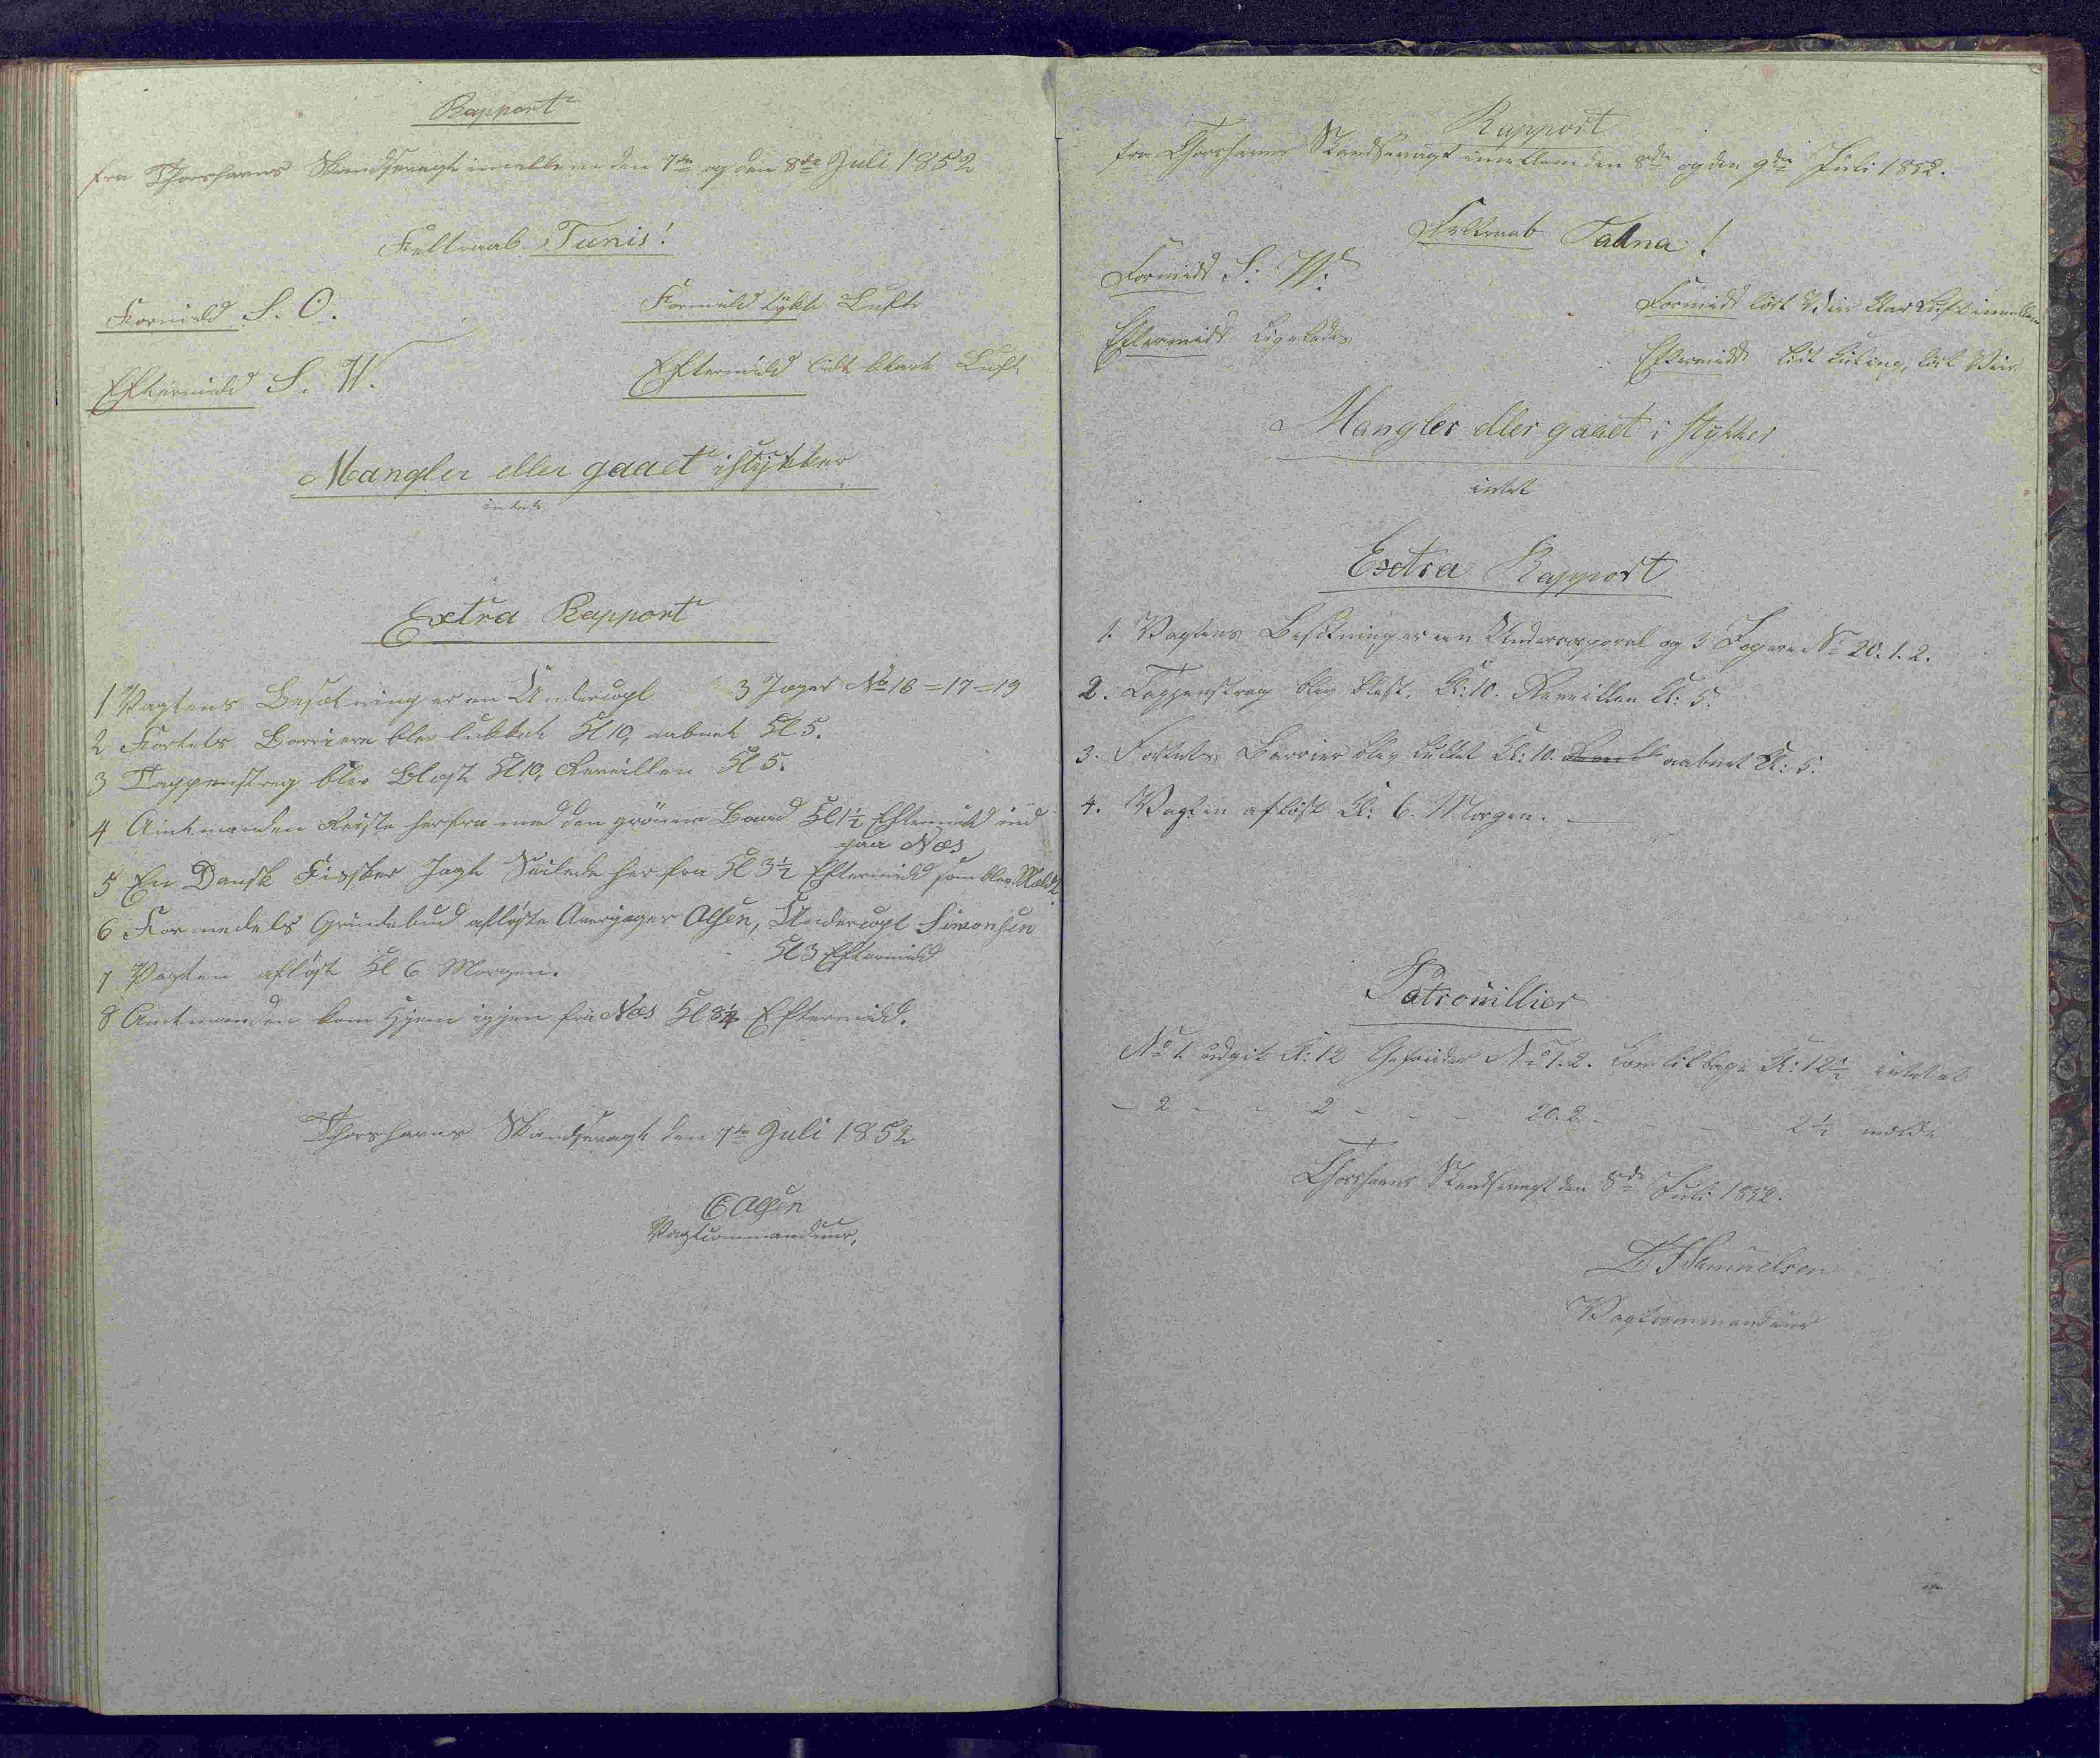 Rapport
fra Thorshavns Skandsevagt imellem den 7de og den 8de Juli 1852
Feltraab Tunis!
Formidd S. O.
Formidd tykt Luft
Eftermidd S. W.
Eftermidd lidt klart Luft
Mangler eller gaaet istykker
intet
Extra Rapport
1 Vagtens Besætning er en Undercopl 3 Jæger No 16=17=19
2 Fortets Barriere blev lukket Kl 10, aabnet Kl 5.
3 Tappenstreg blev blæst Kl 10, Reveillen Kl 5.
4 Amtmanden Reiste herfra med den grönne Baad Kl 1½ Eftermidd ind
paa Næs
5 En Dansk Fissker Jagt Seilede herfra Kl 3½ Eftermidd som blev Meldt
6 Formedels Grindebud aflöste Overjæger Olsen, Undercopl Simonsen
Kl 3 Eftermidd
7 Vagten aflöst Kl 6 Morgen.
8 Amtmanden kom Hjem igjen fra Næs Kl 8¼ Eftermidd.
Thorshavns Skandsevagt den 7de Juli 1852
Olsen
Vagtcommandeur,
Rapport
fra Thorshavns Skandsevagt imellem den 8de og den 9de Juli 1852.
Feltraab
Formidd S: W:
Formidd tört Veir klar Luft imellem
Eftermidd Ligeledes
Eftermidd lidt Kuling, tört Veir
Mangler eller gaaet i stykker
intet
Extra Rapport
1. Vagtens Besætning er een Undercorporal og 3 Jægere No 20. 1. 2.
2. Tappenstreg blev blæst. Kl: 10. Reveillen Kl: 5.
3. Fortets Barrier blev lukket Kl: 10. aabnet Kl: 5.
4. Vagten aflöst Kl: 6. Morgen.
Patrouillier
No 1. udgik Kl: 12 Gefreider No 1. 2. kom tilbage Kl: 12½ intet at
- 2 - - 2 - - - 20. 2. - - - 2½ melde
Thorshavns Skandsevagt den 8de Juli 1852.
Samuelsen
Vagtcommandeur